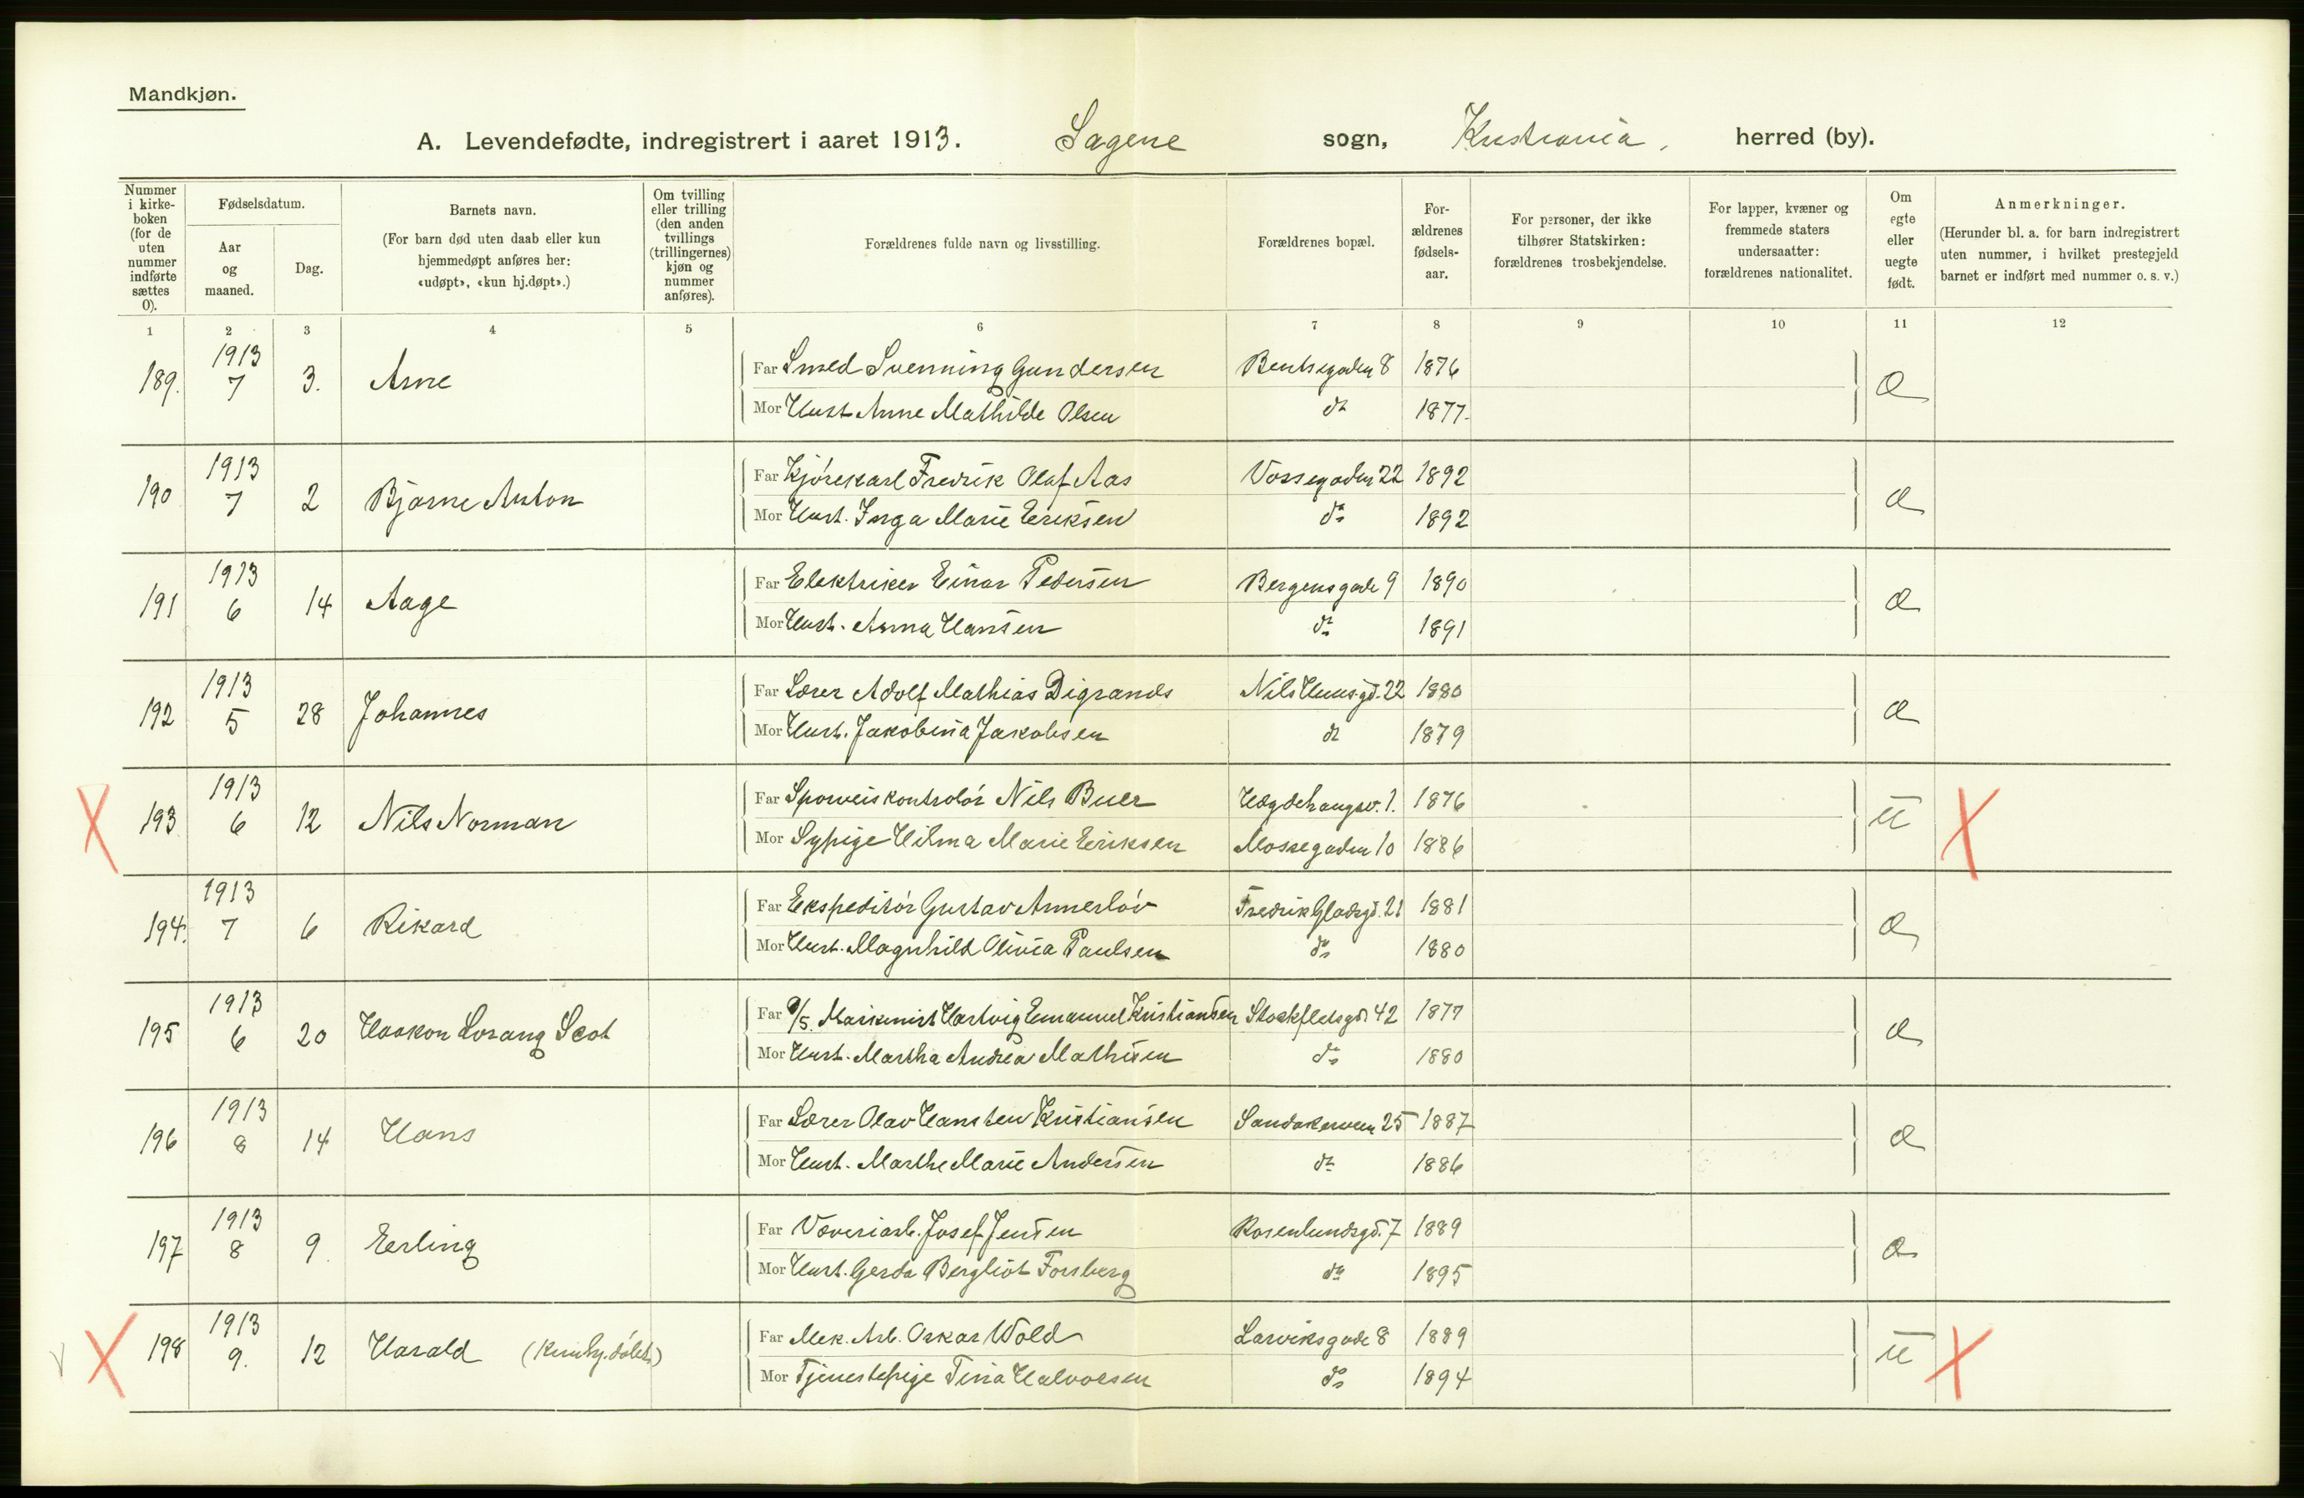 Mandkjøn.
A. Levendefødte, indregistrert i aaret 1913. Sagene sogn, Kristiania, herred (by).
Nummer i kirkeboken (for de uten nummer indførte sættes 0).
Fødselsdatum.
Aar og maaned.
Dag.
Barnets navn.
(For barn død uten daab eller kun hjemmedøpt anføres her: «udøpt», «kun hj.døpt».)
Om tvilling eller trilling (den anden tvillings (trillingernes) kjøn og nummer anføres).
Forældrenes fulde navn og livsstilling.
Forældrenes bopæl.
Forældrenes fødselsaar.
For personer, der ikke tilhører Statskirken: forældrenes trosbekjendelse.
For lapper, kvæner og fremmede staters undersaatter: forældrenes nationalitet.
Om egte eller uegte født.
Anmerkninger.
(Herunder bl. a. for barn indregistrert uten nummer, i hvilket prestegjeld barnet er indført med nummer o. s. v.)
1 2 3 4 5 6 7 8 9 10 11 12
189. 1913 7 3. Arne
Far Smed Svenning Gundersen Bentsegaden 8 1876
Mor Hust Anne Mathilde Olsen do 1877.
190 1913 7 2 Bjarne Anton
Far Kjørekarl Fredrik Olaf Aas Vossegaden 22 1892
Mor Hust. Inga Marie Eriksen do 1892
191 1913 6 14 Aage
Far Elektriker Einar Pedersen Bergensgade 9 1890
Mor Hust. Anna Hansen do 1891
192 1913 5 28 Johannes
Far Lærer Adolf Mathias Digranes Nils Huusgd. 22 1880
Mor Hust. Jakobina Jakobsen do 1879
193 1913 6 12 Nils Norman
Far Sporveiskontrolør Nils Buer Hægdehaugsv. 1. 1876 u
Mor Sypige Hilma Marie Eriksen Mossegaden 10 1886
194. 1913 7 6 Rikard
Far Ekspeditør Gustav Annerløv Fredrik Gladsgd. 21 1881
Mor Hust. Magnhild Olivia Paulsen do 1880
195 1913 6 20 Haakon Lorang Scot
Far 9/5. Maskinist Hartvig Emanuel Kristiansen Stockfletsgd. 42 1877
Mor Hust. Martha Andrea Mathisen do 1880
196 1913 8 14 Hans
Far Lærer Olav Hansten Kristiansen Sandakerveien 25 1887
Mor Hust. Marthe Marie Andersen do 1886
197 1913 8 9. Erling
Far Væveriarb. Josef Jensen Rosenlundsgd. 7 1889
Mor Hust. Gerda Bergliot Forsberg do 1895
198 1913 9. 12 Harald (kun hj.døbt.)
Far Mek. Arb. Oskar Wold Larviksgade 8 1889 u
Mor Tjenestepige Tina Halvorsen do 1894